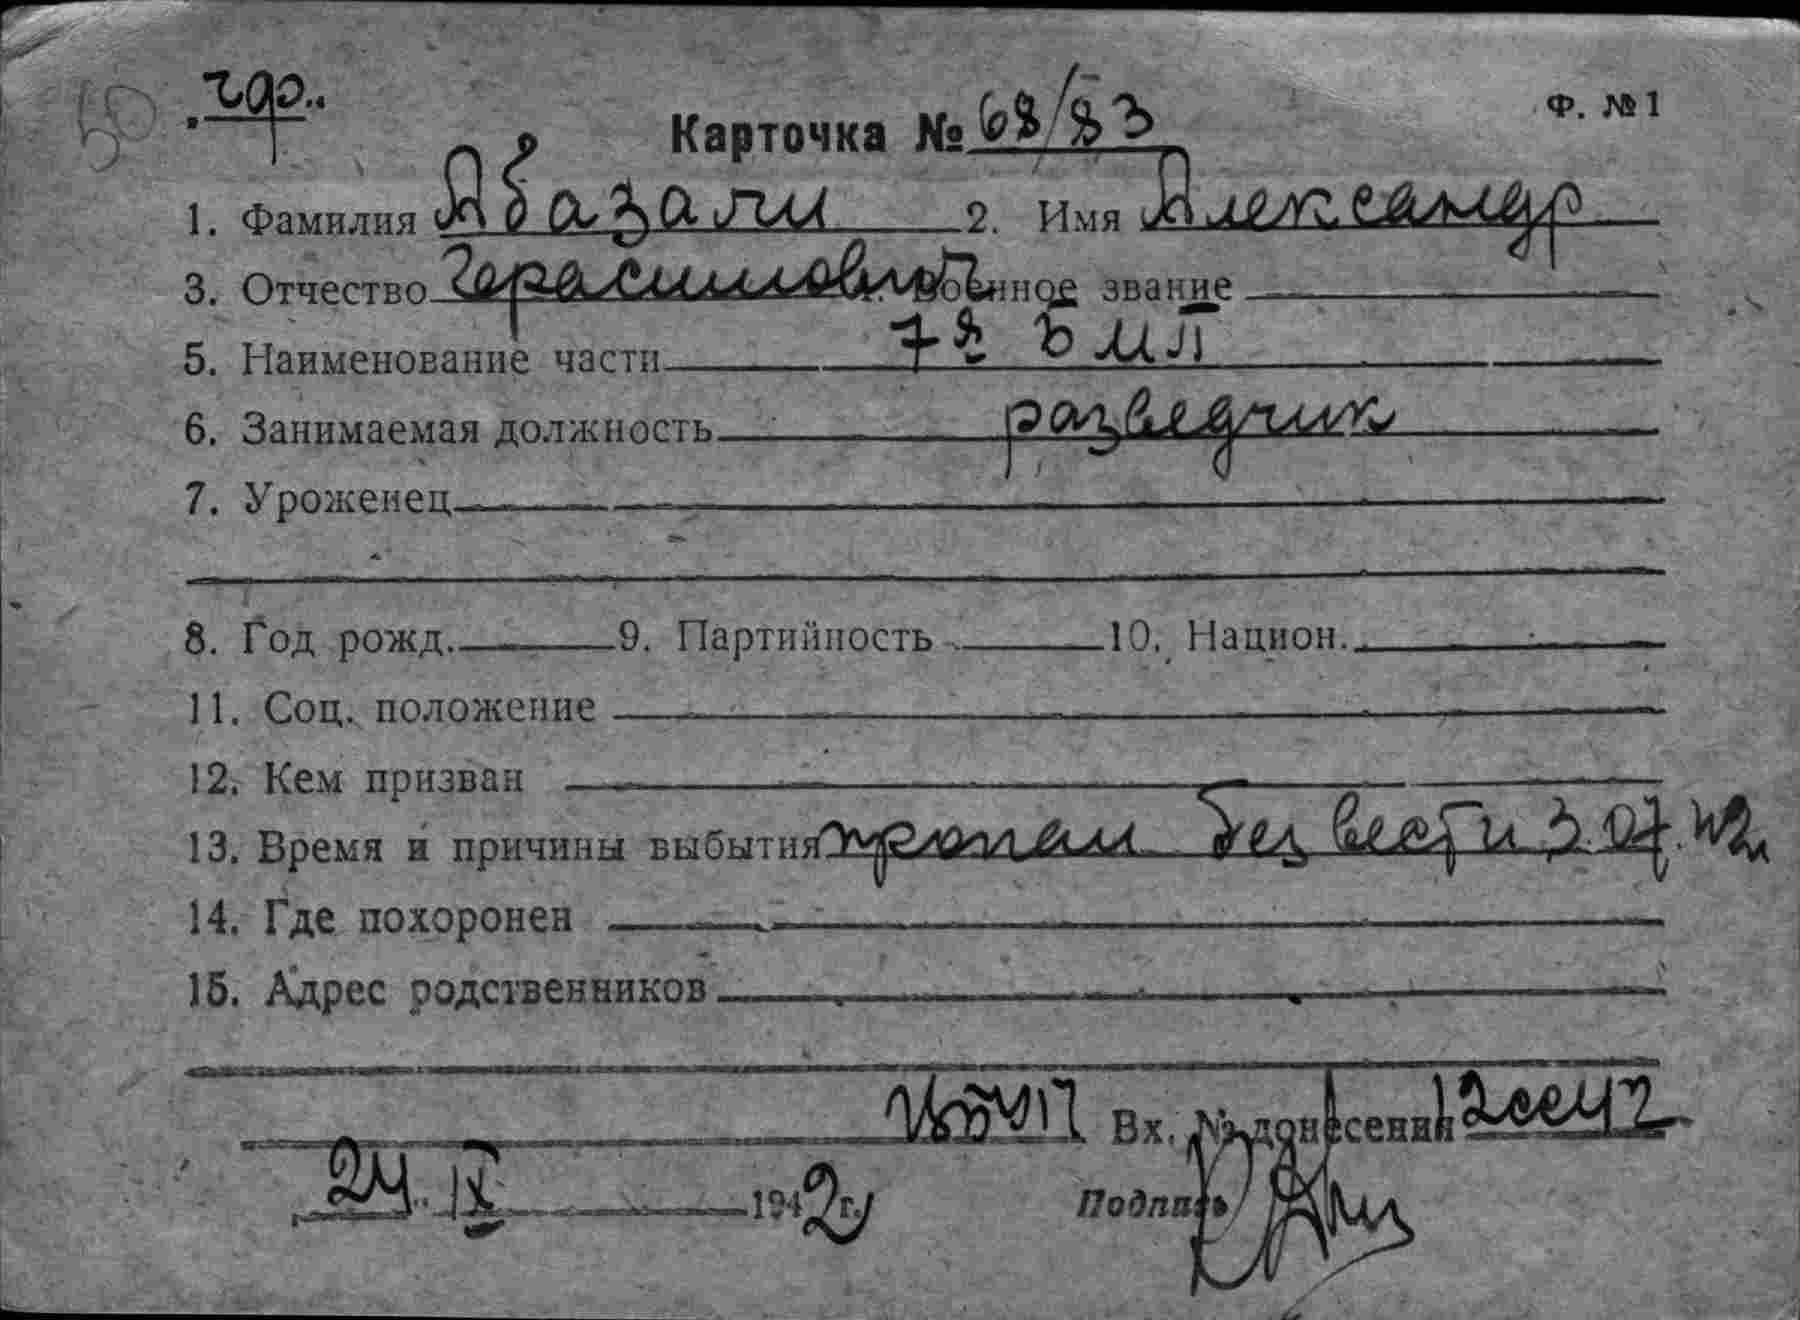 50
Ф. № 1
Карточка № 68/83
1. Фамилия Абазали 2. Имя Александр
3. Отчество Герасимович Военное звание
5. Наименование части 7я БМП
6. Занимаемая должность разведчик
7. Уроженец
8. Год рожд. 9. Партийность 10. Национ.
11. Соц. положение
12. Кем призван
13. Время и причины выбытия пропал без вести 3.07.42г
14. Где похоронен
15. Адрес родственников
Вх. № донесения
24 IX 1942 г.
Подпись